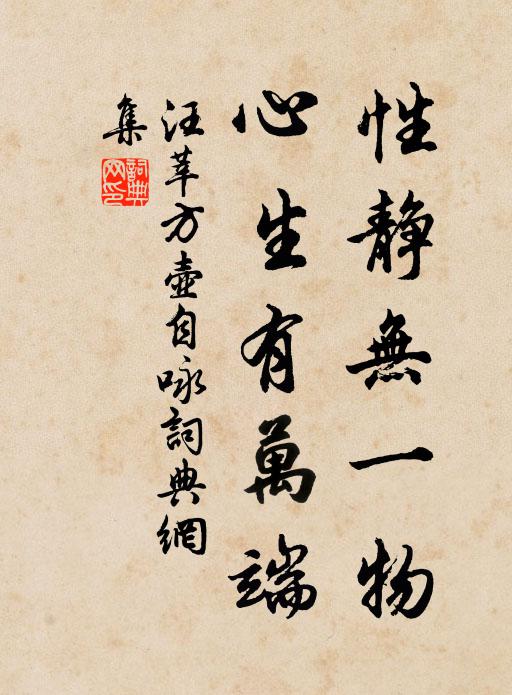 性静無一物
心生有萬端
汪莘方壺自咏詞典網
集
詞典網印